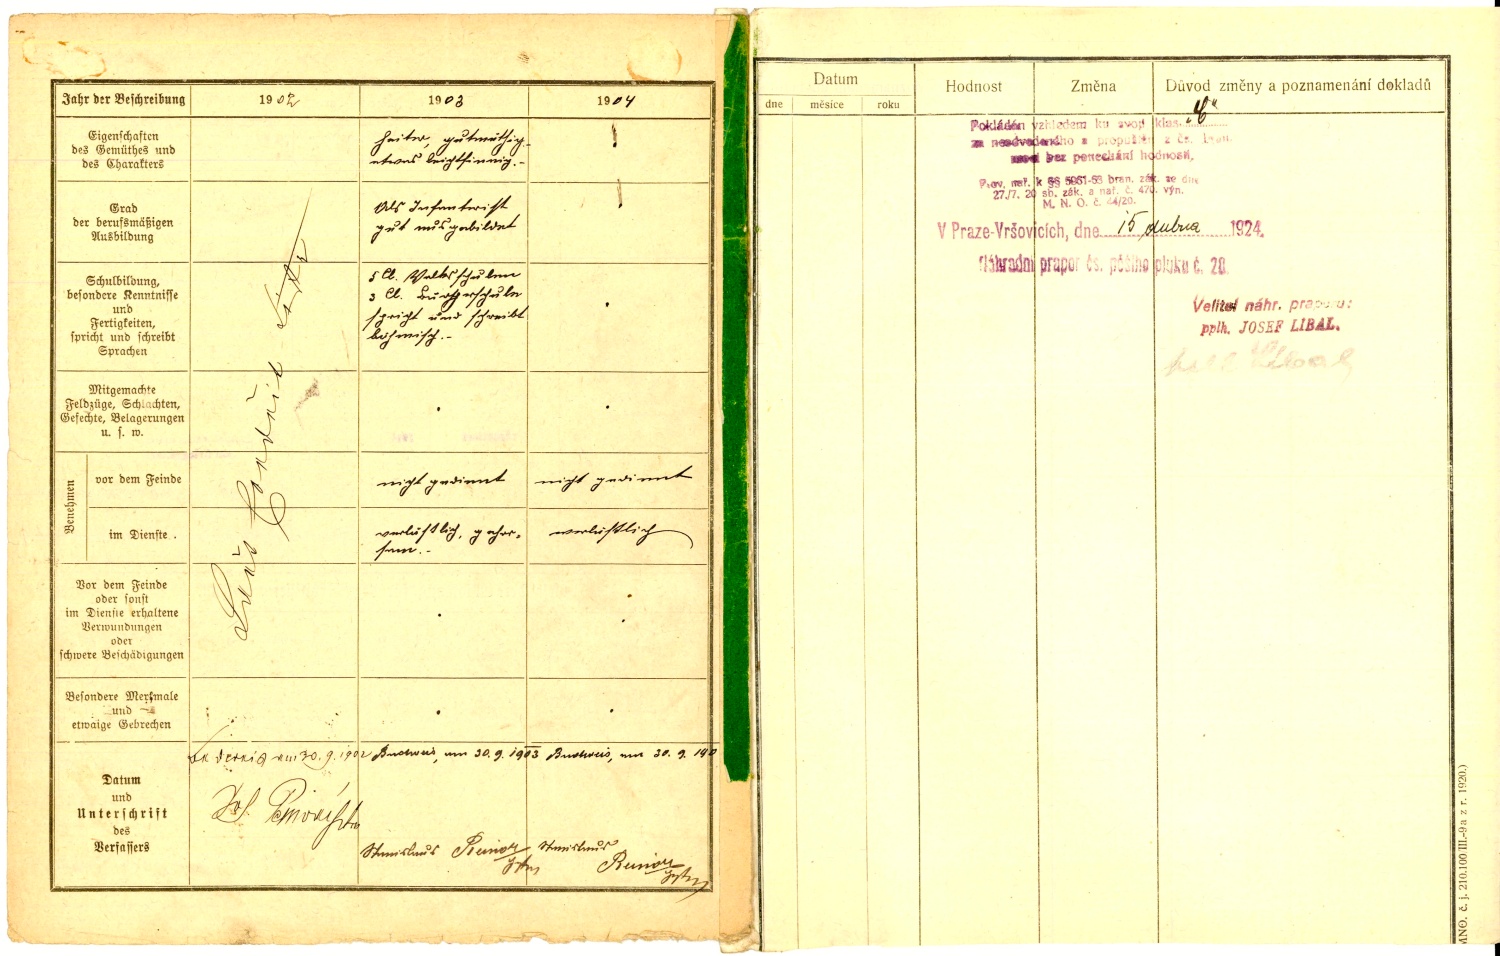 Jahr der Beschreibung
1902
1903
1904
Eigenschaften
des Gemüthes und
des Charakters
heiter, gutmüthig
etwas leichtsinnig.-
Grad
der berufsmäßigen
Ausbildung
Als Infanterist
gut ausgebildet
Schulbildung,
besondere Kenntnisse
und
Fertigkeiten,
spricht und schreibt
Sprachen
5 Cl. Volksschulen
3 Cl. Bürgerschule
spricht und schreibt
böhmisch.-
Mitgemachte
Feldzüge, Schlachten,
Gefechte, Belagerungen
u. s. w.
Benehmen
vor dem Feinde
nicht gedient
nicht gedient
im Dienste.
verläßlich, gehor-
sam.-
verläßlich
Vor dem Feinde
oder sonst
im Dienste erhaltene
Verwundungen
oder
schwere Beschädigungen
Besondere Merkmale
und
etwaige Gebrechen
Datum
und
Unterschrift
des
Verfassers
am 30.9.1902
Budweis, am 30.9.1903
Budweis, am 30.9.190
Jos.
Stanislaus
Stanislaus
Datum
Hodnost
Změna
Důvod změny a poznamenání dokladů
dne
měsíce
roku
Pokládán vzhledem ku svojí klas. "C"
za neodvedeného a propuštěn z čs. bran.
moci bez ponechání hodnosti,
Prov. nař. k §§ 5051-53 bran. zák. ze dne
27./7. 20 sb. zák. a nař. č. 470. výn.
M. N. O. č. 44/20.
V Praze-Vršovicích, dne 15 dubna 1924.
Náhradní prapor čs. pěšího pluku č. 28.
Velitel náhr. praporu:
pplk. JOSEF LIBAL.
MNO. č. j. 210.100/III.-9a z r. 1920.)